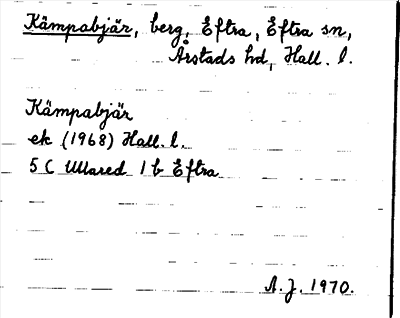 Kämpabjär, berg, Eftra, Eftra sn,
Årstads hd, Hall. l.
Kämpabjär
ek (1968) Hall. l.
5 C Ullared 1 b Eftra
A. J. 1970.